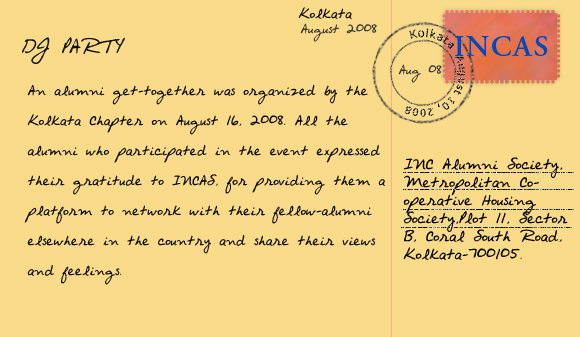 Kolkata
August 2008
DJ PARTY
An alumni get-together was organized by the
Kolkata Chapter on August 16, 2008. All the
alumni who participated in the event expressed
their gratitude to INCAS, for providing them a
platform to network with their fellow-alumni
elsewhere in the country and share their views
and feelings.
Kolkata
August 10, 2008
Aug 08
INCAS
INC Alumni Society,
Metropolitan Co-
operative Housing
Society,Plot 11, Sector
B, Coral South Road,
Kolkata-700105.